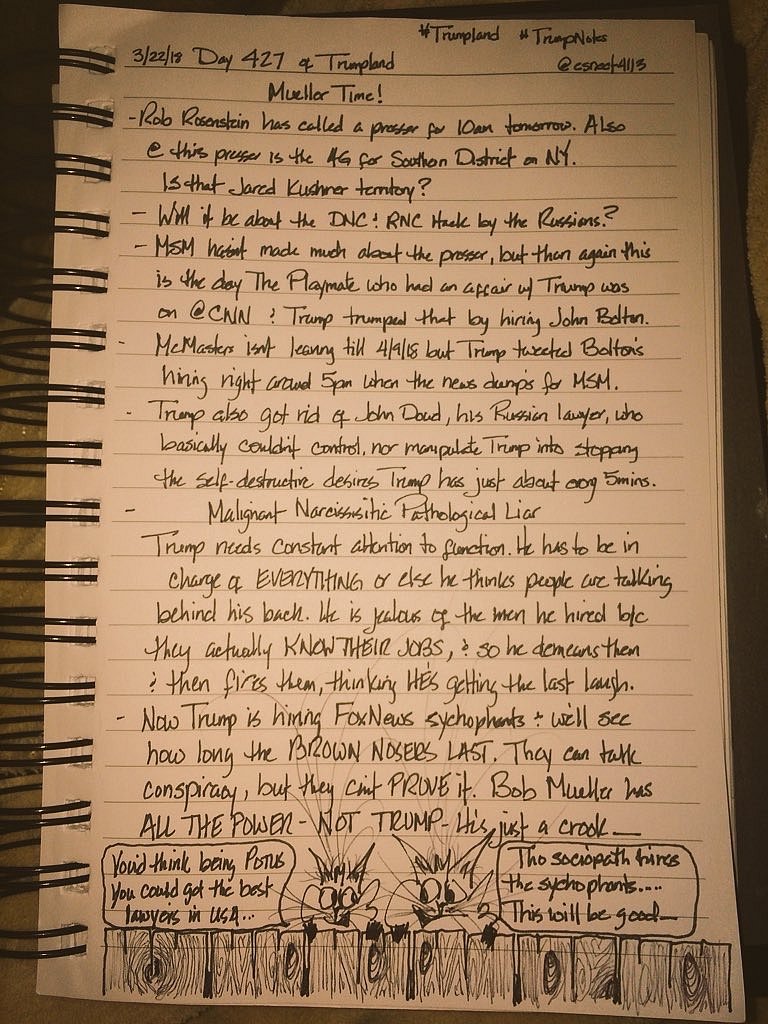 #Trumpland #TrumpNotes
3/22/18 Day 427 of Trumpland @esneet4113
Mueller Time!
- Rob Rosenstein has called a presser for 10am tomorrow. Also
@ this presser is the AG for Southern District on NY.
Is that Jared Kushner territory?
- Will it be about the DNC & RNC Hack by the Russians?
- MSM hasn't made much about the presser, but then again this
is the day The Playmate who had an affair w/ Trump was
on @CNN & Trump trumped that by hiring John Bolton.
- McMasters isn't leaving till 4/9/18 but Trump tweeted Bolton's
hiring right around 5pm when the news dumps for MSM.
- Trump also got rid of John Dowd, his Russian lawyer, who
basically couldn't control, nor manipulate Trump into stopping
the self-destructive desires Trump has just about every 5mins.
- Malignant Narcissisitic Pathological Liar
Trump needs constant attention to function. He has to be in
charge of EVERYTHING or else he thinks people are talking
behind his back. He is jealous of the men he hired b/c
they actually KNOW THEIR JOBS, & so he demeans them
& then fires them, thinking HE'S getting the last laugh.
- Now Trump is hiring FoxNews sychophants & we'll see
how long the BROWN NOSERS LAST. They can talk
conspiracy, but they can't PROVE it. Bob Mueller has
ALL THE POWER - NOT TRUMP - He's just a crook —
You'd think being POTUS
you could get the best
lawyers in USA...
The sociopath hires
the sychophants....
This will be good —